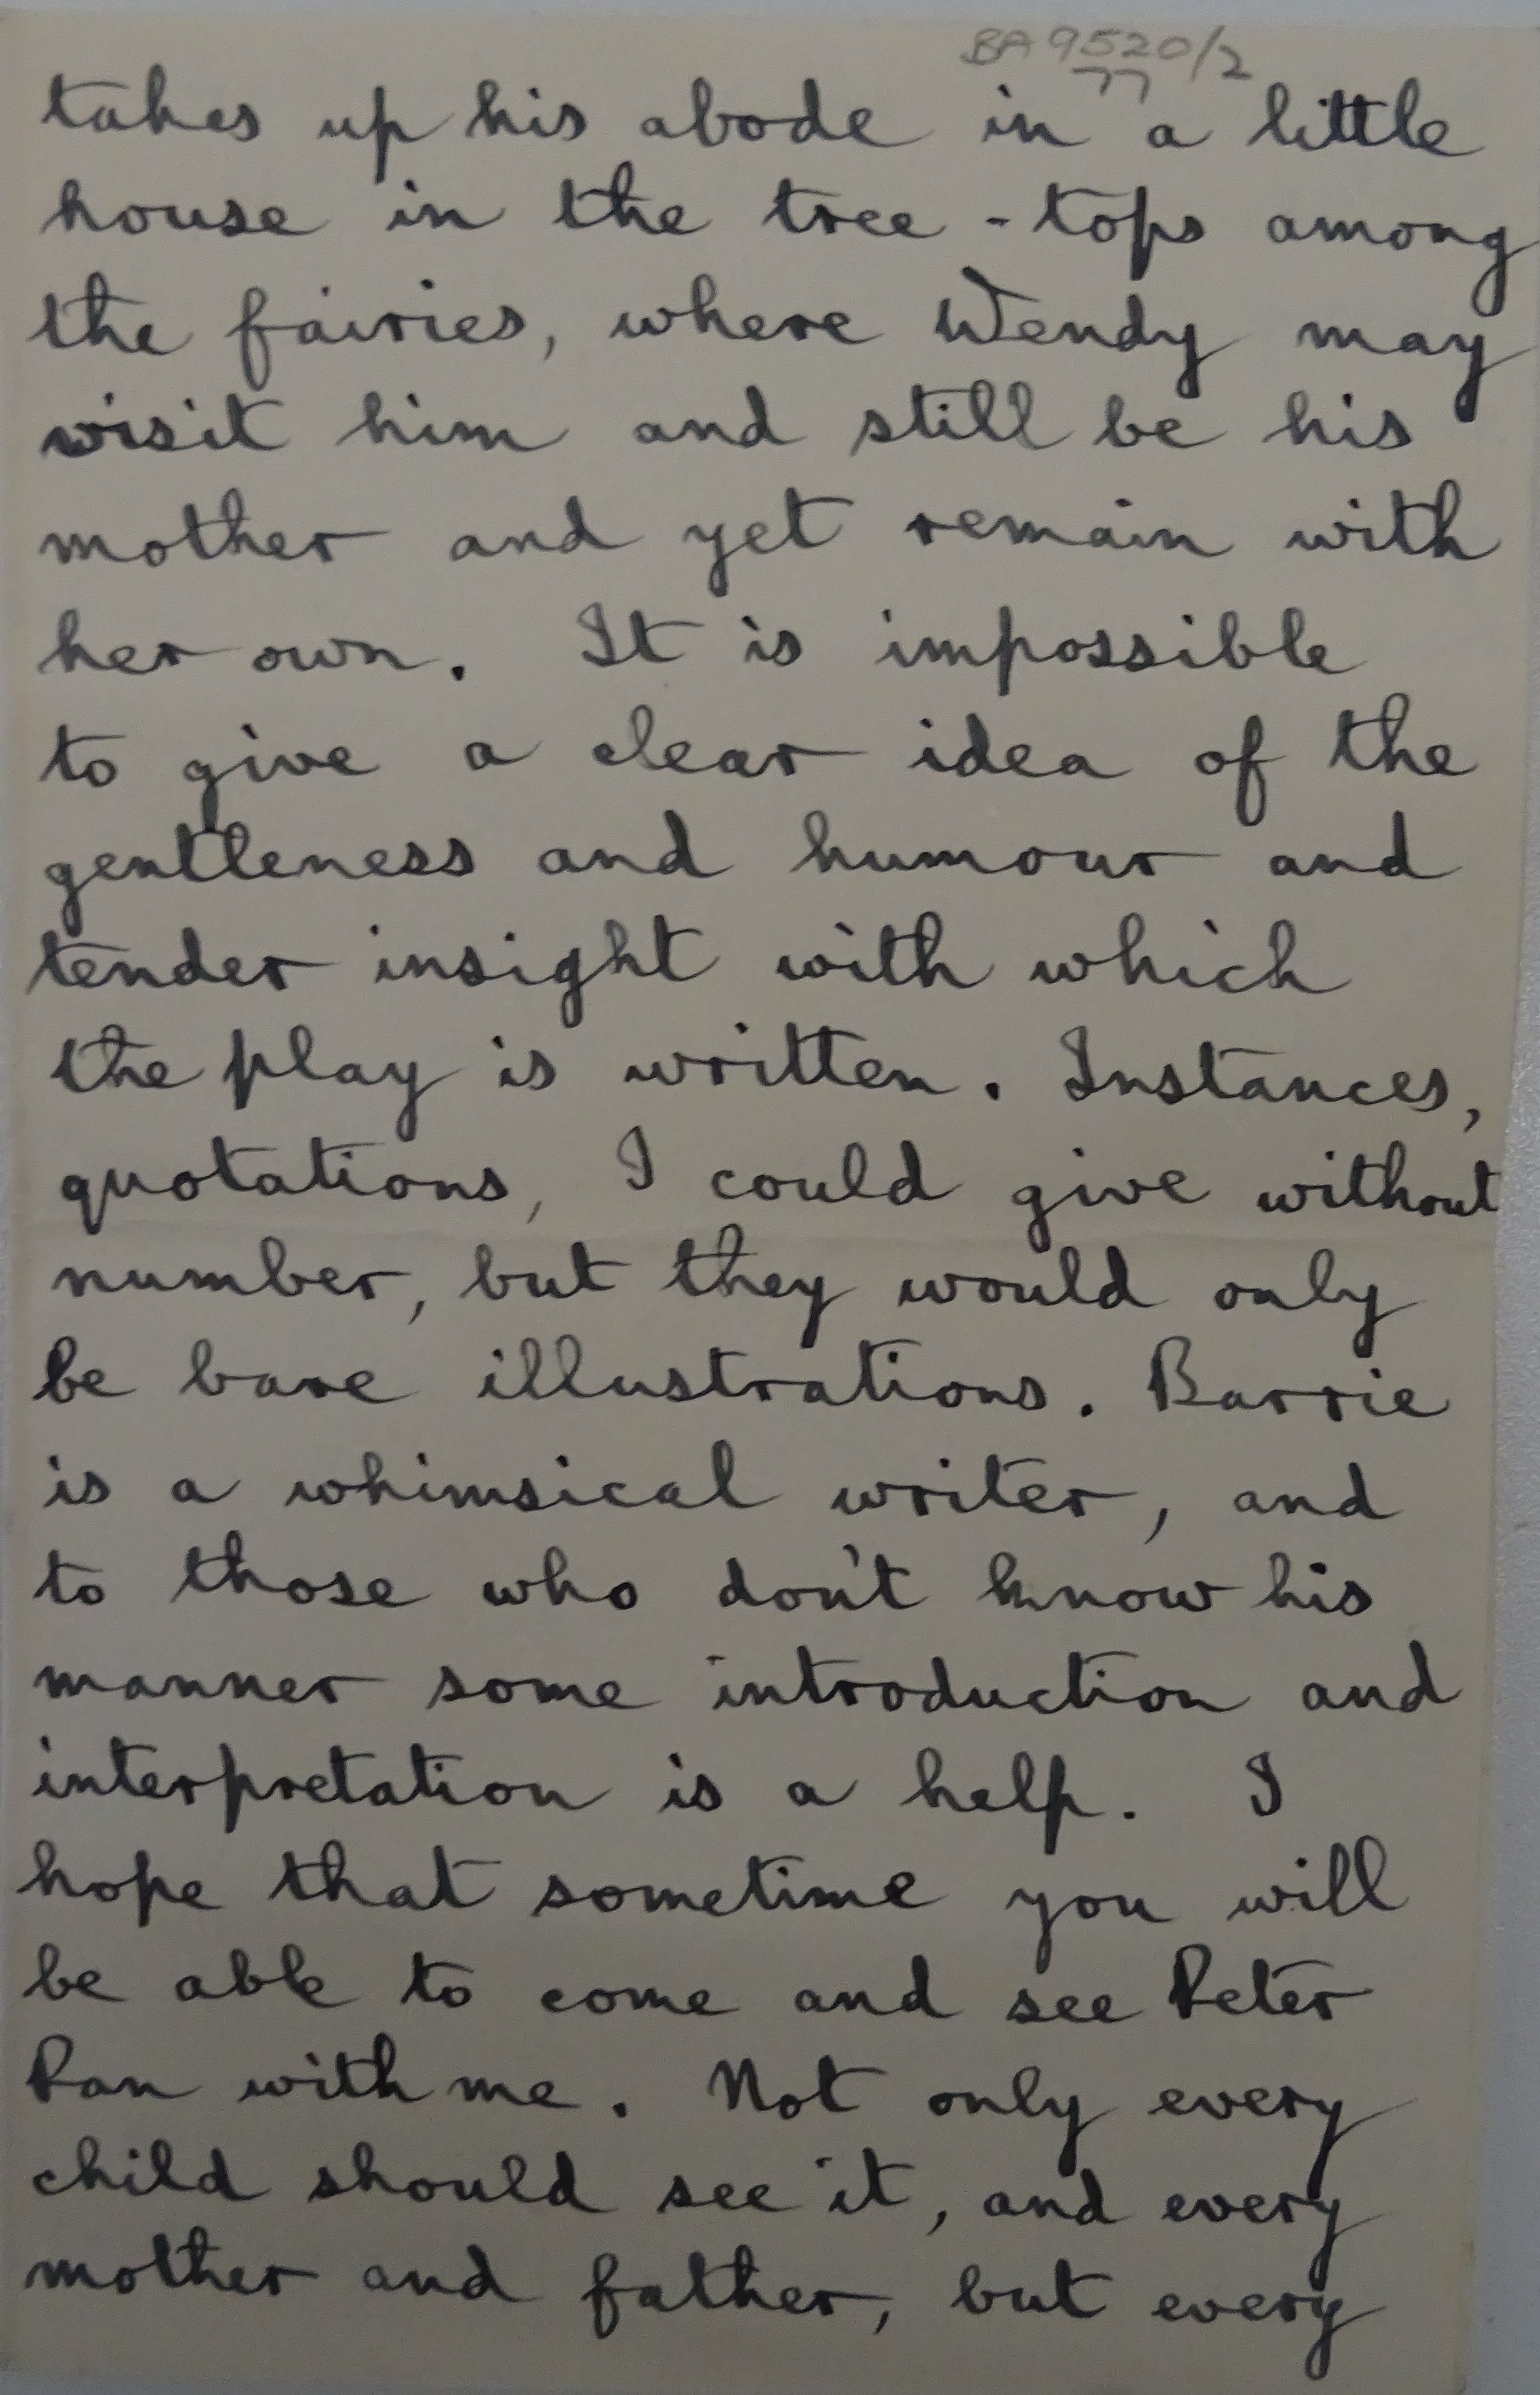 BA 9520/2
77
takes up his abode in a little
house in the tree-tops among
the fairies, where Wendy may
visit him and still be his
mother and yet remain with
her own. It is impossible
to give a clear idea of the
gentleness and humour and
tender insight with which
the play is written. Instances,
quotations, I could give without
number, but they would only
be bare illustrations. Barrie
is a whimsical writer, and
to those who don't know his
manner some introduction and
interpretation is a help. I
hope that sometime you will
be able to come and see Peter
Pan with me. Not only every
child should see it, and every
mother and father, but every